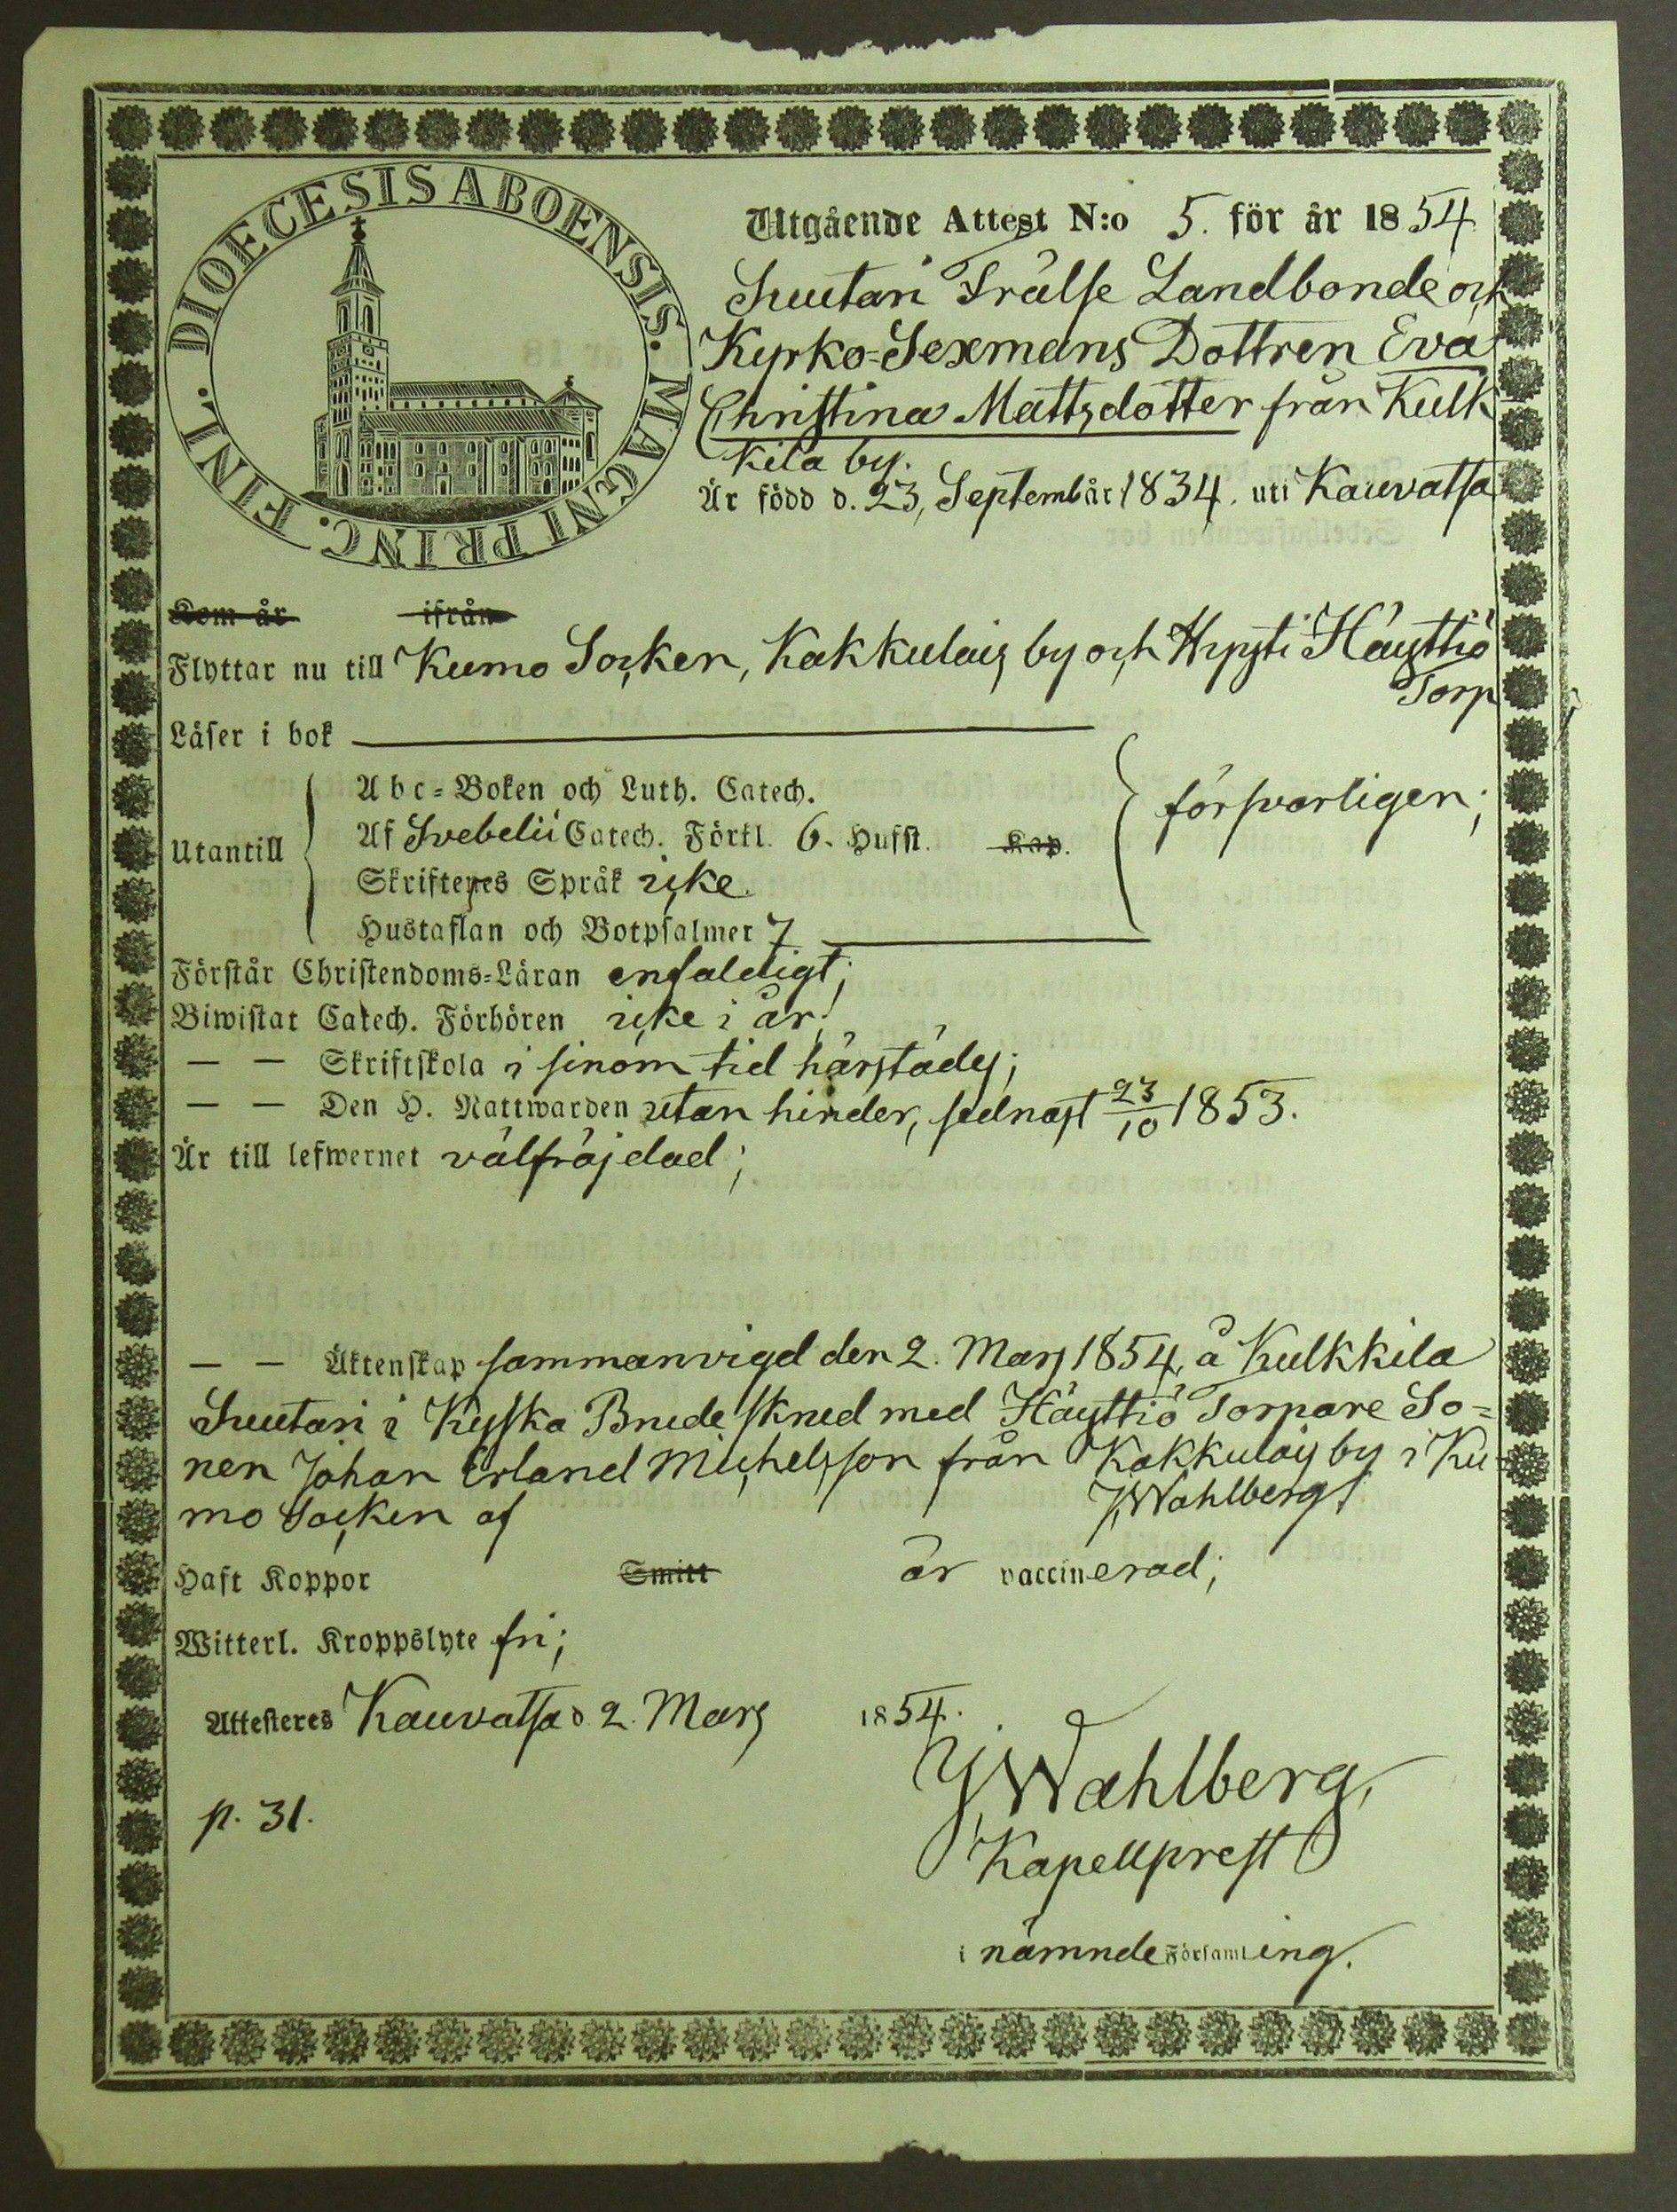 DIOECESIS ABOENSIS. MAGNI PRINC. FINL.
Utgående Attest N:o 5. för år 1854
Suutari Frälse Landbonde och
Kyrko=Sexmans Dottren Eva
Christina Mattsdotter från Kulk
kila by.
Är född d. 23, Septembår 1834. uti Kauvatsa
Kom år ifrån
Flyttar nu till Kumo Socken, Kakkulais by och Häyttiö
Torp
Läser i bok
Abc=Boken och Luth. Catech.
försvarligen;
Utantill
Af Svebelii Catech. Förkl. 6. Hufst. Kap.
Skriftenes Språk icke
Hustaflan och Botpsalmer 7
Förstår Christendoms=Läran enfaldigt;
Biwistat Catech. Förhören icke i år;
— — Skriftskola i sinom tid härstädes;
— — Den H. Nattwarden utan hinder, sednast 23/10 1853.
Är till lefwernet välfräjdad;
— — Äktenskap sammanvigd den 2. Mars 1854, å Kulkkila
Suutari i Kyska Brudeskrud med Häyttiö Torpare So=
nen Johan Erland Michelsson från Kakkulais by i Ku=
mo Socken af JWahlberg
Haft Koppor Smitt är vaccinerad;
Witterl. Kroppslyte fri;
Attesteres Kauvatsa d. 2. Mars 1854.
JWahlberg,
p. 31.
Kapellprest
i nämnde Församling.